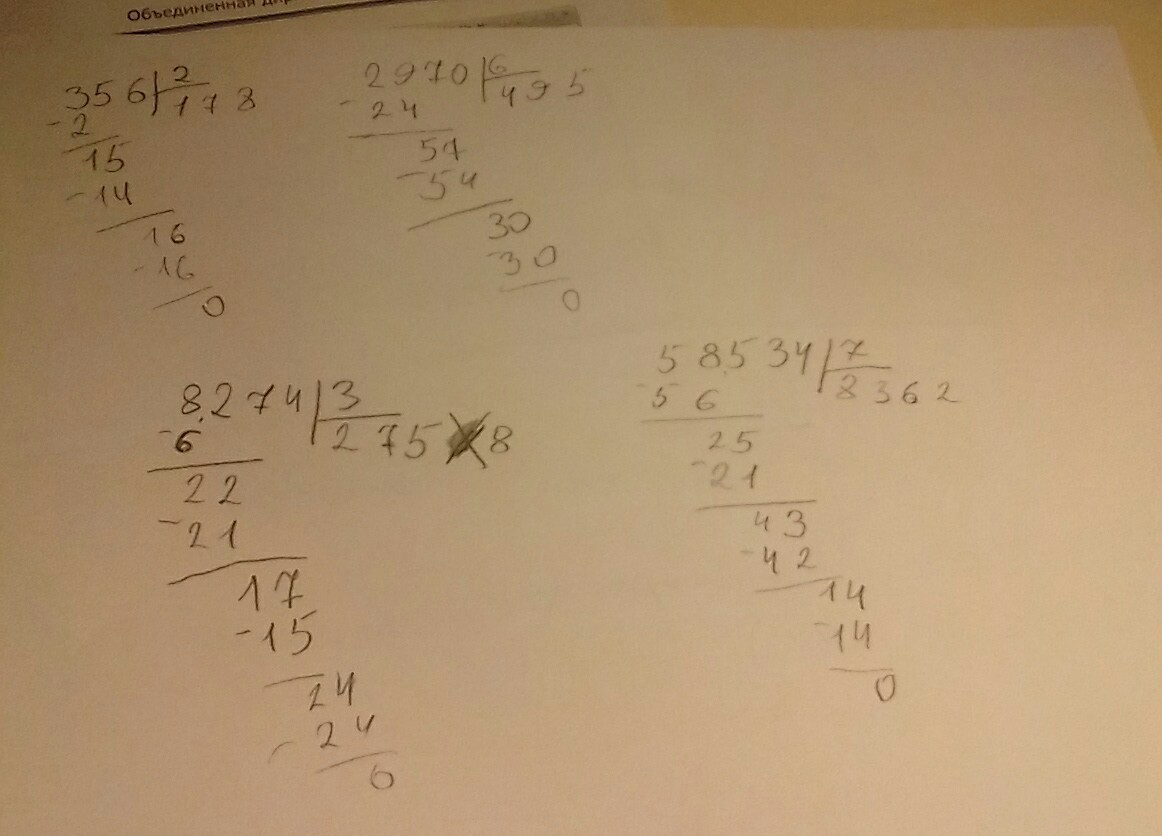 Объединенная дир
356 2
178
-2
15
-14
16
-16
0
2970 6
495
-24
57
-54
30
-30
0
8274 3
2758
-6
22
-21
17
-15
24
-24
0
58534 7
8362
-56
25
-21
43
-42
14
-14
0